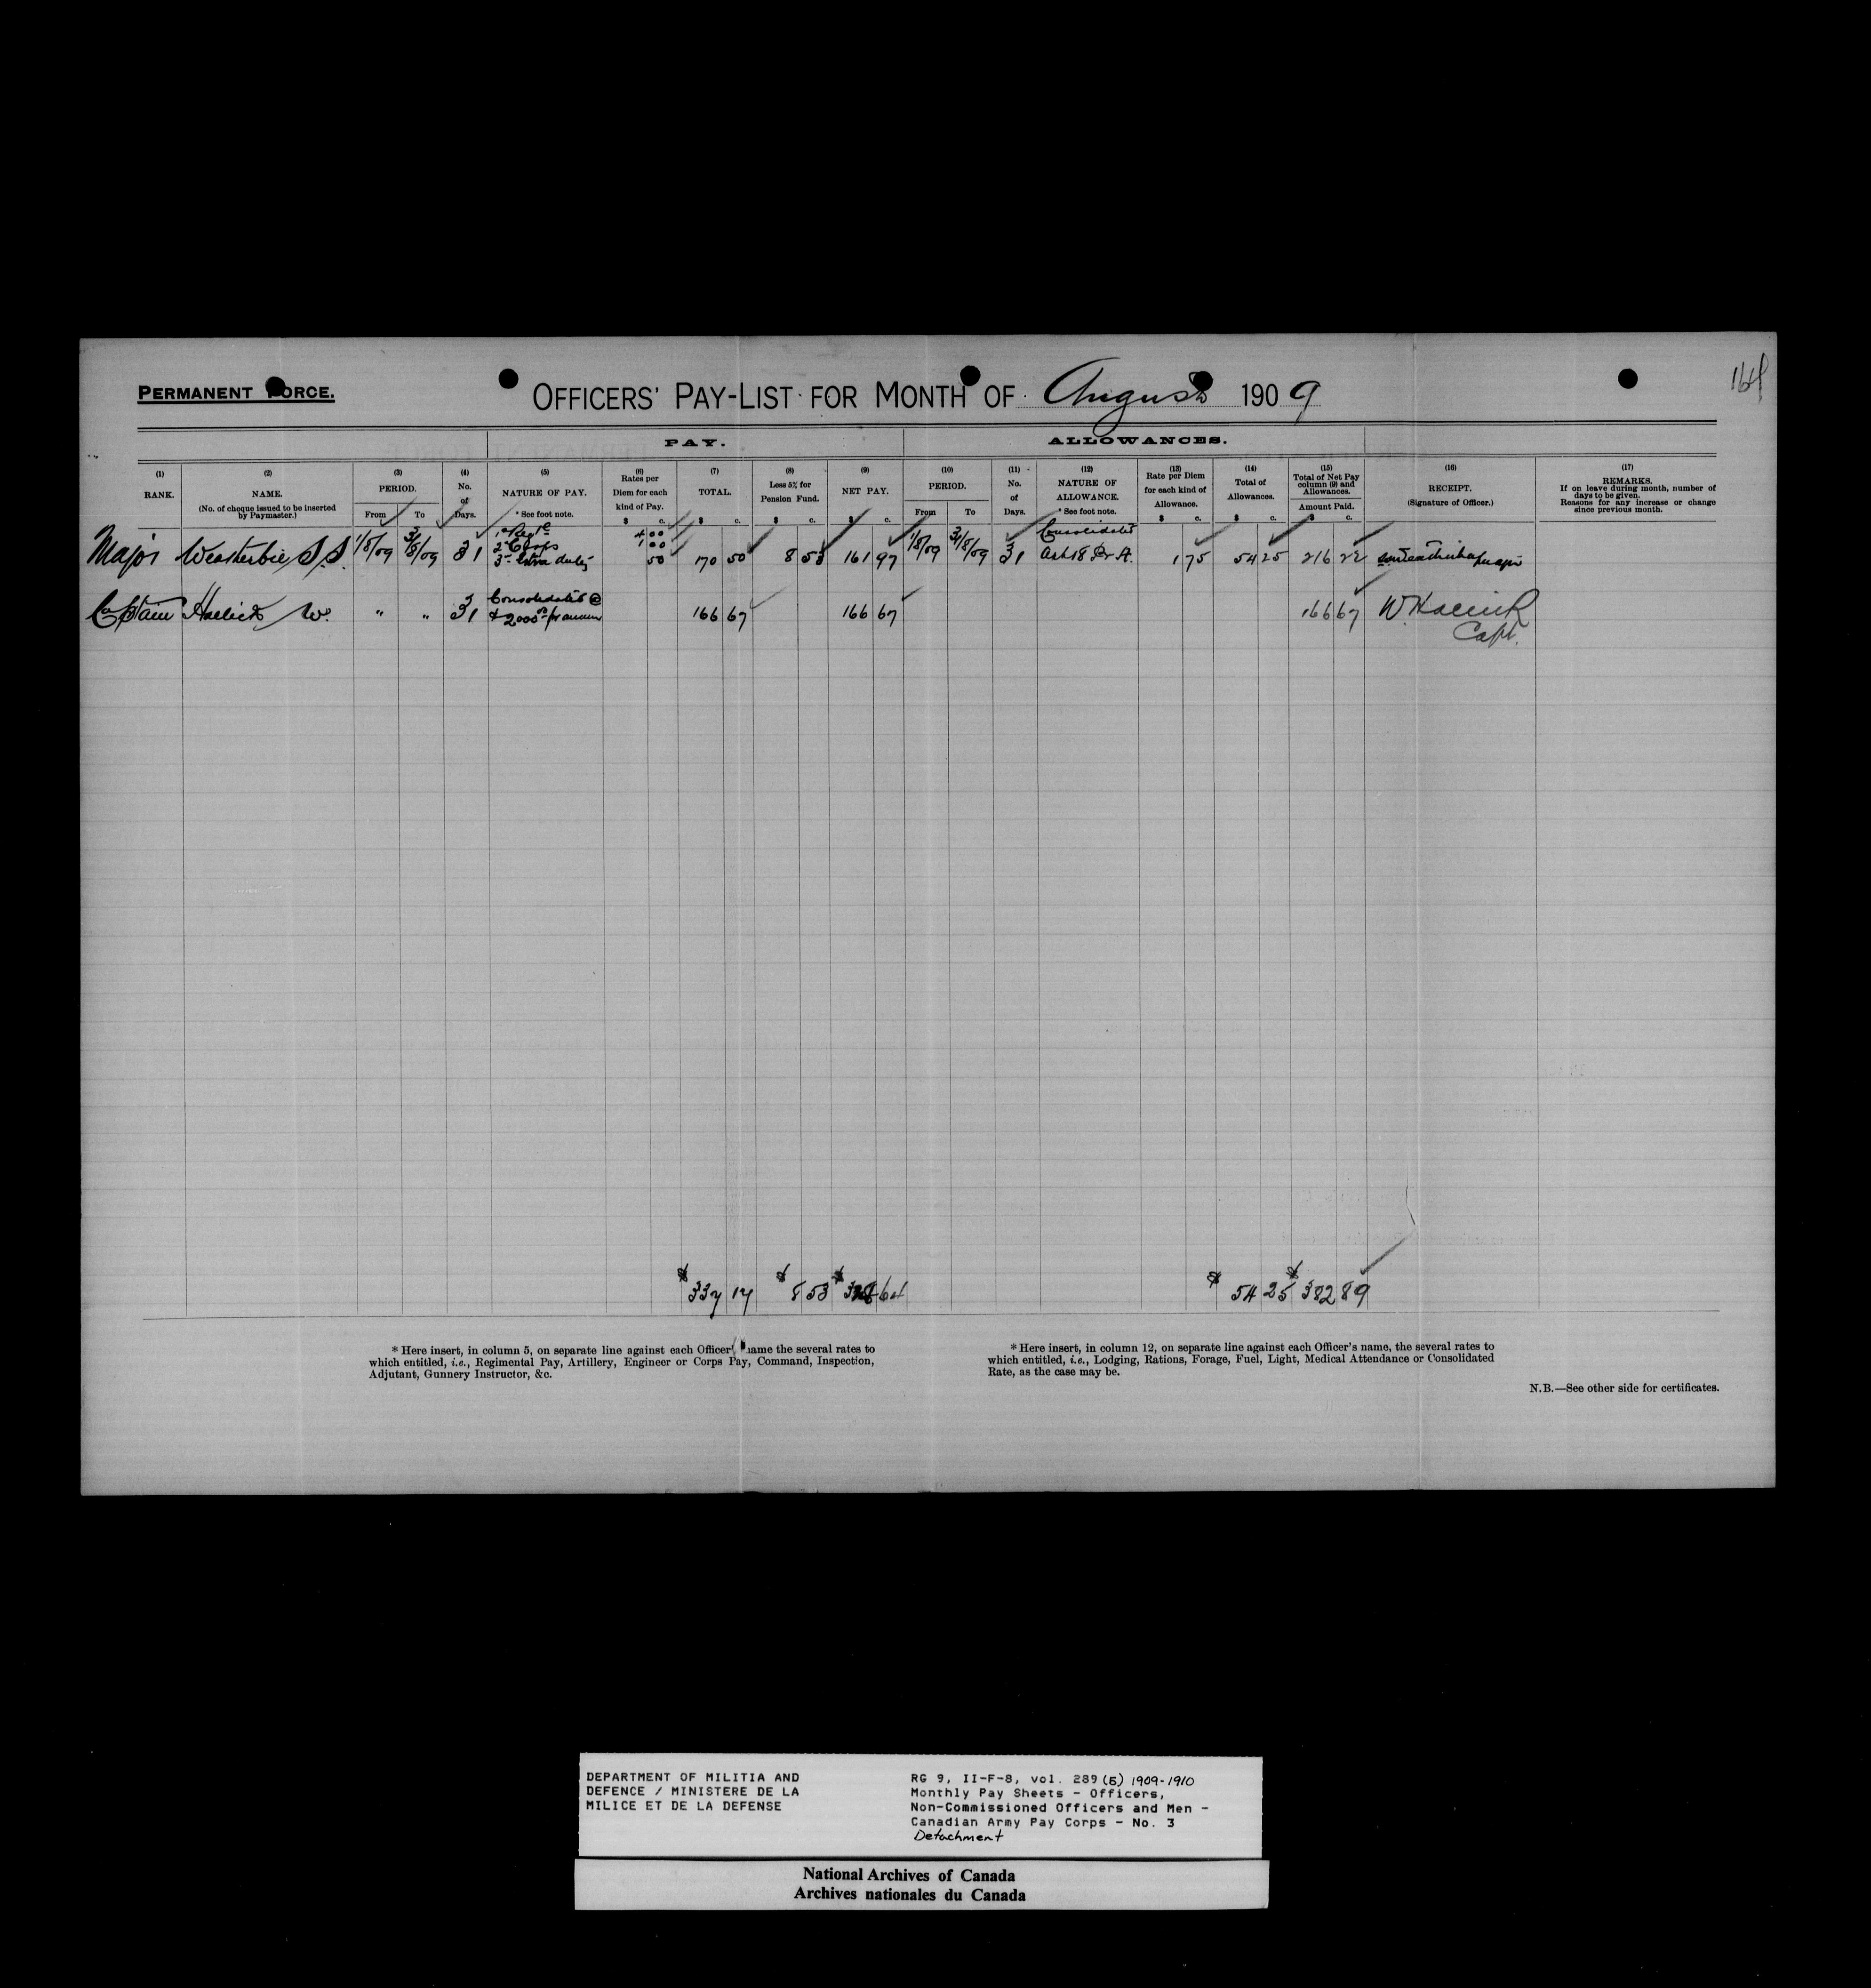 164
PERMANENT FORCE.
OFFICERS' PAY-LIST FOR MONTH OF August 1909
PAY.
ALLOWANCES.
(1) RANK.
(2) NAME. (No. of cheque issued to be inserted by Paymaster.)
(3) PERIOD. From To
(4) No. of Days.
(5) NATURE OF PAY. * See foot note.
(6) Rates per Diem for each kind of Pay. $ c.
(7) TOTAL. $ c.
(8) Less 5% for Pension Fund. $ c.
(9) NET PAY. $ c.
(10) PERIOD. From To
(11) No. of Days.
(12) NATURE OF ALLOWANCE. * See foot note.
(13) Rate per Diem for each kind of Allowance. $ c.
(14) Total of Allowances. $ c.
(15) Total of Net Pay column (9) and Allowances. Amount Paid. $ c.
(16) RECEIPT. (Signature of Officer.)
(17) REMARKS. If on leave during month, number of days to be given. Reasons for any increase or change since previous month.
1- Regtl 4 00 Consolidated
2- Corps 1 00
Major Weatherbie 1/8/09 31/8/09 31 3- Extra duty 50 170 50 8 53 161 97 1/8/09 31/8/09 31 1 75 54 25 216 22
Consolidated @
Captain W. " " 31 $2000 00 per annum 166 67 166 67 166 67 W.
Capt.
$ 337 17 $ 8 53 $ 64 $ 54 25 $ 382 89
* Here insert, in column 5, on separate line against each Officer' name the several rates to
which entitled, i.e., Regimental Pay, Artillery, Engineer or Corps Pay, Command, Inspection,
Adjutant, Gunnery Instructor, &c.
* Here insert, in column 12, on separate line against each Officer's name, the several rates to
which entitled, i.e., Lodging, Rations, Forage, Fuel, Light, Medical Attendance or Consolidated
Rate, as the case may be.
N.B.—See other side for certificates.
DEPARTMENT OF MILITIA AND
DEFENCE / MINISTERE DE LA
MILICE ET DE LA DEFENSE
RG 9, II-F-8, vol. 289 (5) 1909-1910
Monthly Pay Sheets - Officers,
Non-Commissioned Officers and Men -
Canadian Army Pay Corps - No. 3
Detachment
National Archives of Canada
Archives nationales du Canada